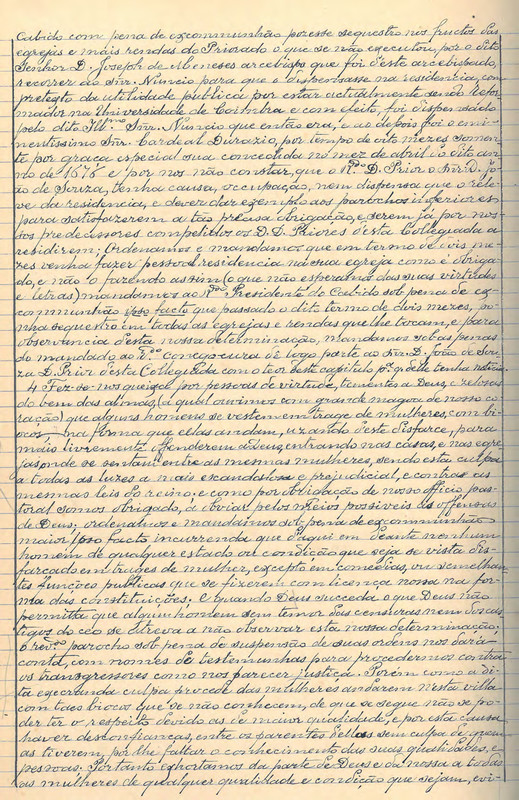 Cabido com pena de excommunhão pozesse sequestro nos fructos das
egrejas e mais rendas do Priorado o que se não executou, por o dito
Senhor D. Joseph de Menezes arcebispo que foi d'este arcebispado,
recorrer ao Snr. Nuncio para que o dispensasse na residencia, com
pretexto da utilidade publica por estar actualmente sendo Refor
mador na Universidade de Coimbra e com effeito, foi dispensado
pelo dito Ill.mo Snr. Nuncio que então era, e ao depois foi o emi-
nentissimo Snr. Cardeal Durazio, por tempo de oito mezes somen
te por graça especial sua concedida no mez de abril do dito an
no de 1676 e por nos não constar, que o R.do D. Prior o Snr. D. Jo-
ão de Souza, tenha causa, occupação, nem dispensa que o rele-
ve da residencia, e dever dar exemplo aos parochos inferiores
para satisfazerem a tão precisa obrigação, e serem já por nos-
sos predecessores compellidos os D. D. Priores d'esta Collegiada a
residirem; Ordenamos e mandamos que em termo de dois me-
zes venha fazer pessoal residencia na sua egreja como é obriga-
do, e não o fazendo assim (o que não esperamos das suas virtudes
e letras) mandamos ao R.do Presidente do Cabido sob pena de ex-
communhão ipso facto que passado o dito termo de dois mezes, po-
nha sequestro em todas as egrejas e rendas que lhe tocam, e para
observancia d'esta nossa determinação, mandamos sob as penas
do mandado ao R.do conego-cura de logo parte ao Snr. D. João de Sou-
za D. Prior d'esta Collegiada com o teor d'este capitulo p.a q. d'elle tenha noticia.
4 Fez-se-nos queixa por pessoas de virtude, tementes a Deus, e zelosas
do bem das almas, (a qual ouvimos com grande magoa de nosso co-
ração) que alguns homens se vestem em trage de mulheres, com bi-
ocos na fórma que ellas andam, uzando d'este disfarce, para
mais livremente offenderem a Deus, entrando nas casas, e nas egre
jas onde se sentam entre as mesmas mulheres, sendo esta culpa
a todas as luzes a mais escandalosa e prejudicial, e contra as
mesmas leis do reino: e como por obrigação de nosso officio pas-
toral somos obrigado, a obviar pelos meios possiveis ás offensas
de Deus; ordenamos e mandamos sob pena de excommunhão
maior ipso facto incurrenda que d'aqui em deante nenhum
homem de qualquer estado ou condição que seja se vista dis-
farçado em trages de mulher, excepto em comedias, ou semelhan
tes funcções publicas que se fizerem com licença nossa na for-
ma das constituições. E quando Deus succeda o que Deus não
permitta que algum homem sem temor das censuras nem dos cas-
tigos do céo se atreva a não observar esta nossa determinação:
o rev.do parocho sob pena de suspensão de suas ordens nos dará
conta, com nomes de testemunhas para procedermos contra
os transgressores como nos parecer justiça. Porém como a di-
ta execranda culpa procede das mulheres andarem n'esta villa
com taes biocos que se não conhecem, de que se segue não se po-
der ter o respeito devido ás de maior qualidade, e por esta causa
haver desconfianças, entre os parentes d'ellas sem culpa de quem
as tiverem, por lhe faltar o conhecimento das suas qualidades, e
pessoas. Portanto exhortamos da parte de Deus e da nossa a todas
as mulheres de qualquer qualidade e condição que sejam, evi-